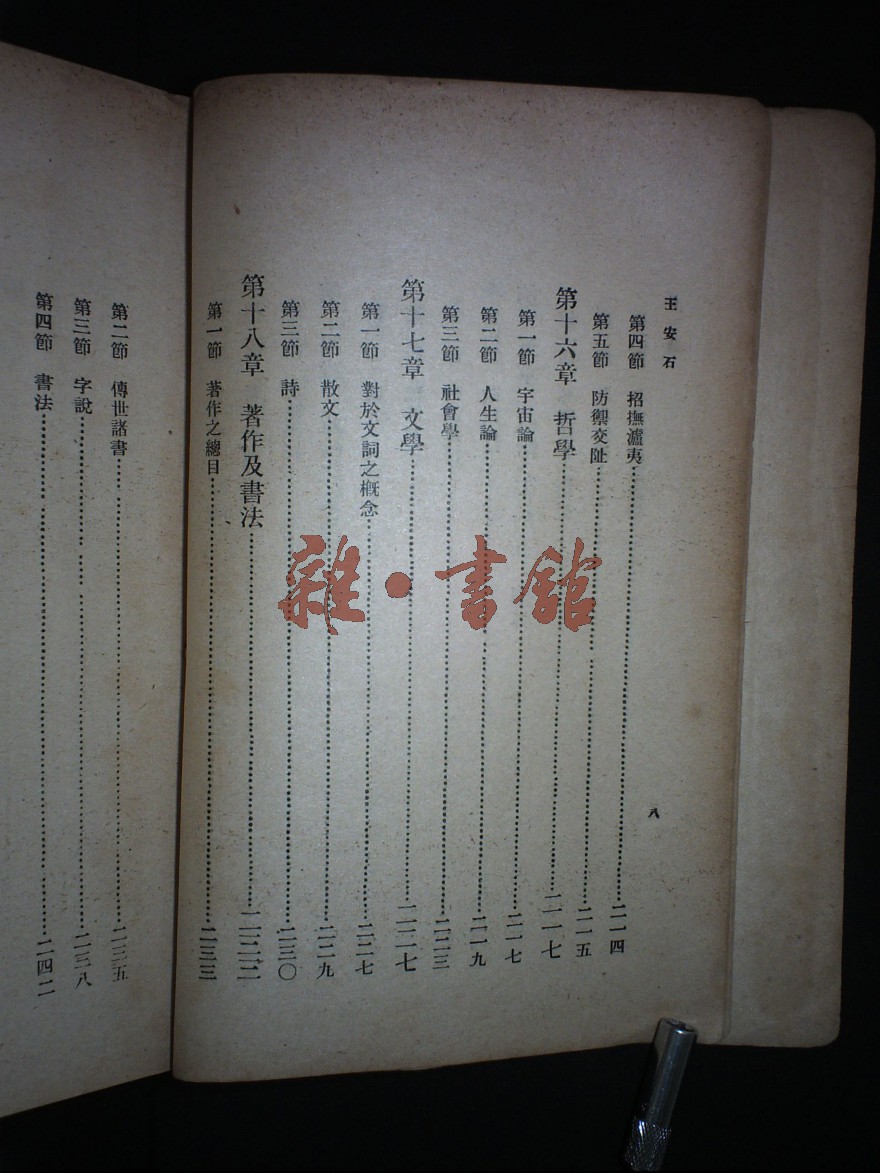 王安石
八
第四節 招撫瀘夷………二一四
第五節 防禦交趾………二一五
第十六章 哲學………二一七
第一節 宇宙論………二一七
第二節 人生論………二一九
第三節 社會學………二二三
第十七章 文學………二二七
第一節 對於文詞之概念………二二七
第二節 散文………二二九
第三節 詩………二三〇
第十八章 著作及書法………二三三
第一節 著作之總目………二三三
第二節 傳世諸書………二三五
第三節 字說………二三八
第四節 書法………二四二
雜·書館